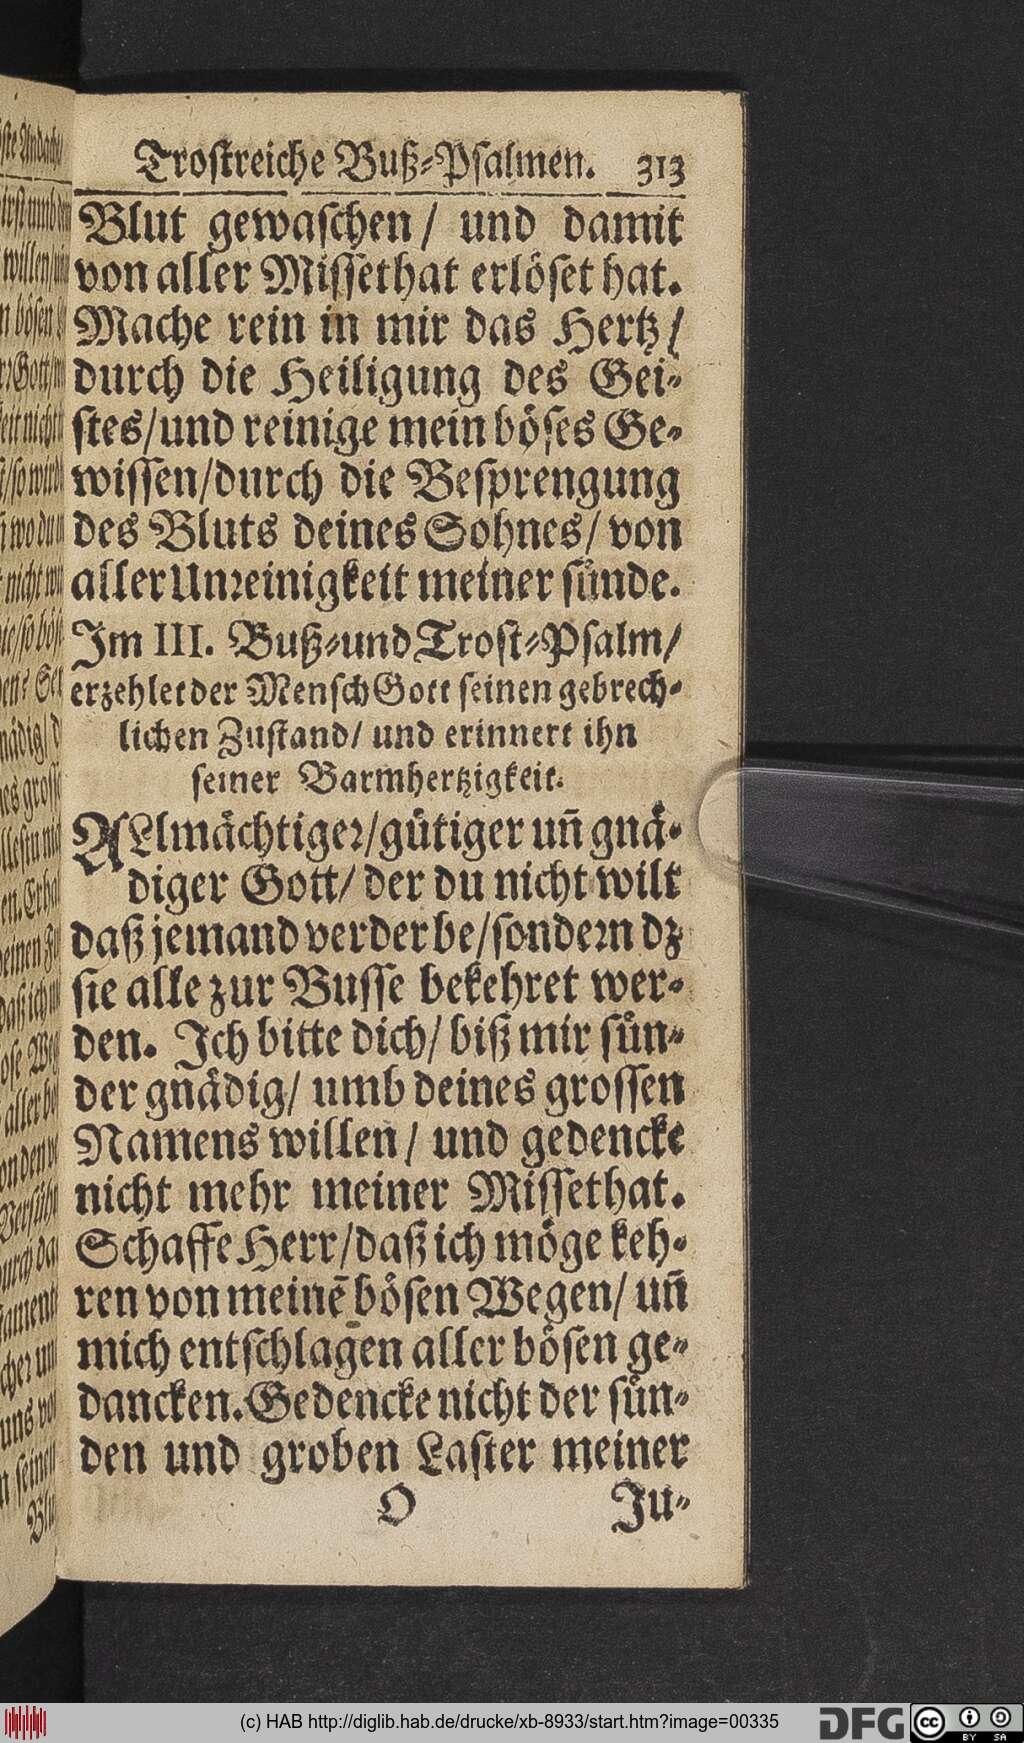 Trostreiche Buß-Psalmen. 313
Blut gewaschen / und damit
von aller Missethat erlöset hat.
Mache rein in mir das Hertz /
durch die Heiligung des Gei-
stes / und reinige mein böses Ge-
wissen / durch die Besprengung
des Bluts deines Sohnes / von
aller Unreinigkeit meiner sünde.
Im III. Buß-und Trost-Psalm /
erzehlet der Mensch Gott seinen gebrech-
lichen Zustand / und erinnert ihn
seiner Barmhertzigkeit.
ALlmächtiger / gütiger uñ gnä-
diger Gott / der du nicht wilt
daß jemand verderbe / sondern dz
sie alle zur Busse bekehret wer-
den. Ich bitte dich / biß mir sün-
der gnädig / umb deines grossen
Namens willen / und gedencke
nicht mehr meiner Missethat.
Schaffe Herr / daß ich möge keh-
ren von meinē bösen Wegen / uñ
mich entschlagen aller bösen ge-
dancken. Gedencke nicht der sün-
den und groben Laster meiner
O Ju-
(c) HAB http://diglib.hab.de/drucke/xb-8933/start.htm?image=00335
DFG
cc BY SA